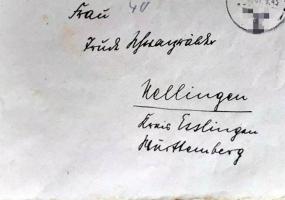 Frau
40
Trude Schwarzwälder
Nellingen
Kreis Esslingen
Württemberg